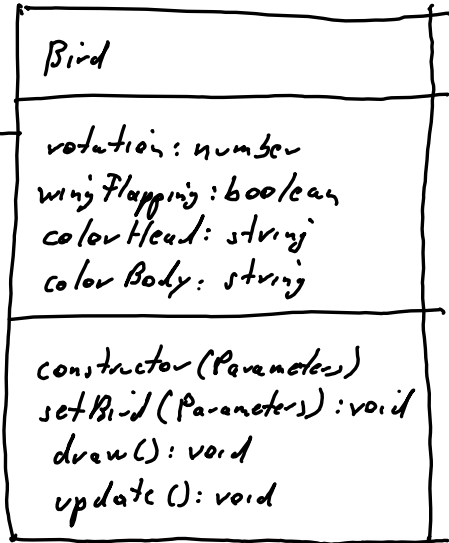 Bird
rotation: number
wingFlapping: boolean
colorHead: string
colorBody: string
constructor(Parameters)
setBird(Parameters): void
draw(): void
update(): void